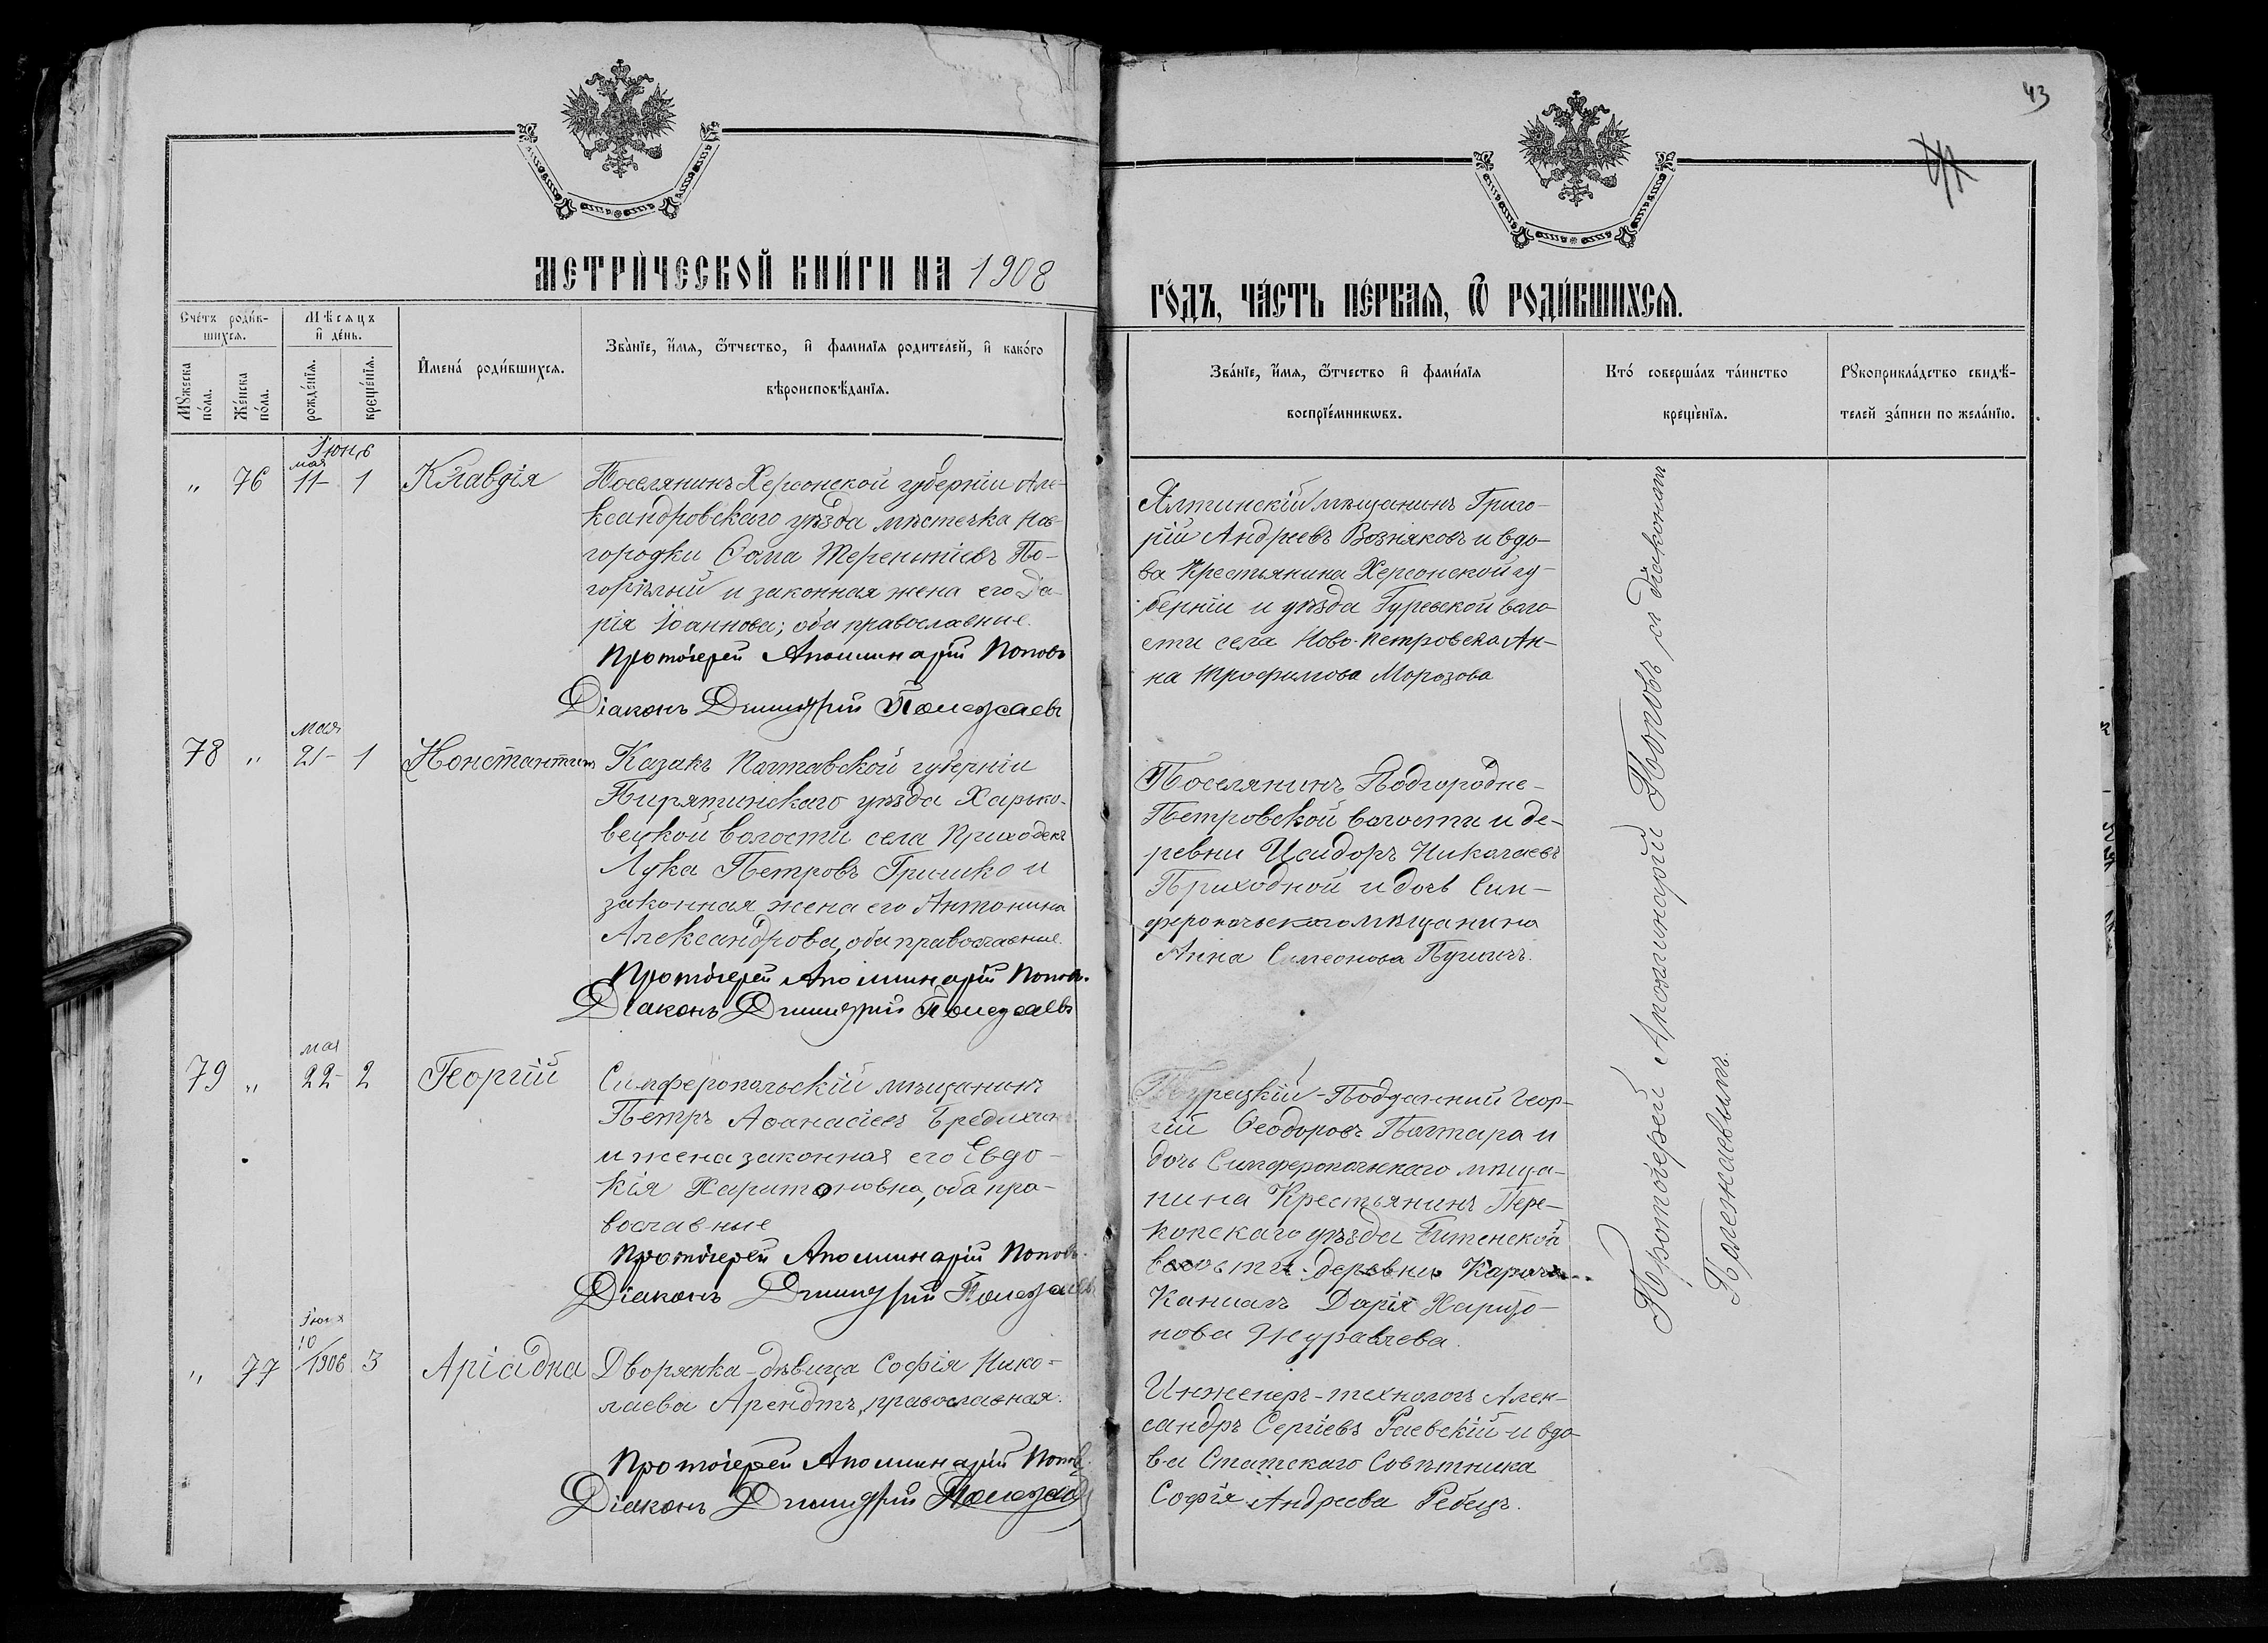 43
МЕТРИ́ЧЕСКОЙ КНИ́ГИ НА 1908
ГО́ДЪ, ЧА́СТЬ ПЕ́РВАѦ, Ѿ РОДИ́ВШИХСѦ.
Сче́тъ роди́в-
шихсѧ.
Мѣсѧцъ
и҆ де́нь.
Мꙋжеска
по́ла.
Же́нска
по́ла.
рожде́нїѧ.
креще́нїѧ.
И҆мена́ роди́вшихсѧ.
Зва́нїе, и҆́мѧ, ѻ҆́тчество, и҆ фами́лїѧ родителей, и҆ како́го
вѣроисповѣ́данїѧ.
Зва́нїе, и҆́мѧ, ѻ҆́тчество и҆ фами́лїѧ
воспрїе́мникѡвъ.
Кто́ соверша́лъ та́инство
креще́нїѧ.
Рꙋкоприкла́дство свидѣ́-
телей за́писи по жела́нїю.
Іюнь
мая
„ 76 11- 1 Клавдія
Поселянинъ Херсонской губерніи Але-
ксандровскаго уѣзда мѣстечка Нов-
городки Ѳома Терентіевъ По-
горѣлый и законная жена его Да-
рія Іоаннова; оба православные.
Протоіерей Аполлинарій Поповъ
Діаконъ Димитрій Полежаевъ
Ялтинскій мѣщанинъ Григо-
рій Андреевъ Возняковъ и вдо-
ва Крестьянина Херсонской гу-
берніи и уѣзда Гурьевской воло-
сти села Ново-Петровска Ан-
на Трофимова Морозова
мая
78 „ 21- 1 Константинъ
Казакъ Полтавской губерніи
Пирятинскаго уѣзда Харько-
вецкой волости села Приходекъ
Лука Петровъ Гришко и
законная жена его Антонина
Александрова, оба православные.
Протоіерей Аполлинарій Поповъ.
Діаконъ Димитрій Полежаевъ
Поселянинъ Подгородне-
Петровской волости и де-
ревни Исидоръ Николаевъ
Приходной и дочь Сим-
феропольскаго мѣщанина
Анна Симеонова
мая
79 „ 22- 2 Георгій
Симферопольскій мѣщанинъ
Петръ Аѳанасіевъ Бредихин
и жена законная его Евдо-
кія Харитоновна, оба пра-
вославные
Протоіерей Аполлинарій Поповъ.
Діаконъ Димитрій Полежаевъ
Турецкій-Подданный Геор-
гій Ѳеодоровъ Палтара и
дочь Симферопольскаго мѣща-
нина Крестьянинъ Пере-
копскаго уѣзда
волости деревни
Дарія Харито-
нова Журавлева.
Іюля
10
„ 77 1906 3 Аріадна
Дворянка-дѣвица Софія Нико-
лаева Арендтъ, православная.
Протоіерей Аполлинарій Поповъ.
Діаконъ Димитрій Полежаевъ
Инженеръ-технологъ Алек-
сандръ Сергіевъ Раевскій и вдо-
ва Статскаго Совѣтника
Софія Андреева Ребецъ.
Протоіерей Аполлинарій Поповъ, съ діакономъ
Полежаевымъ.